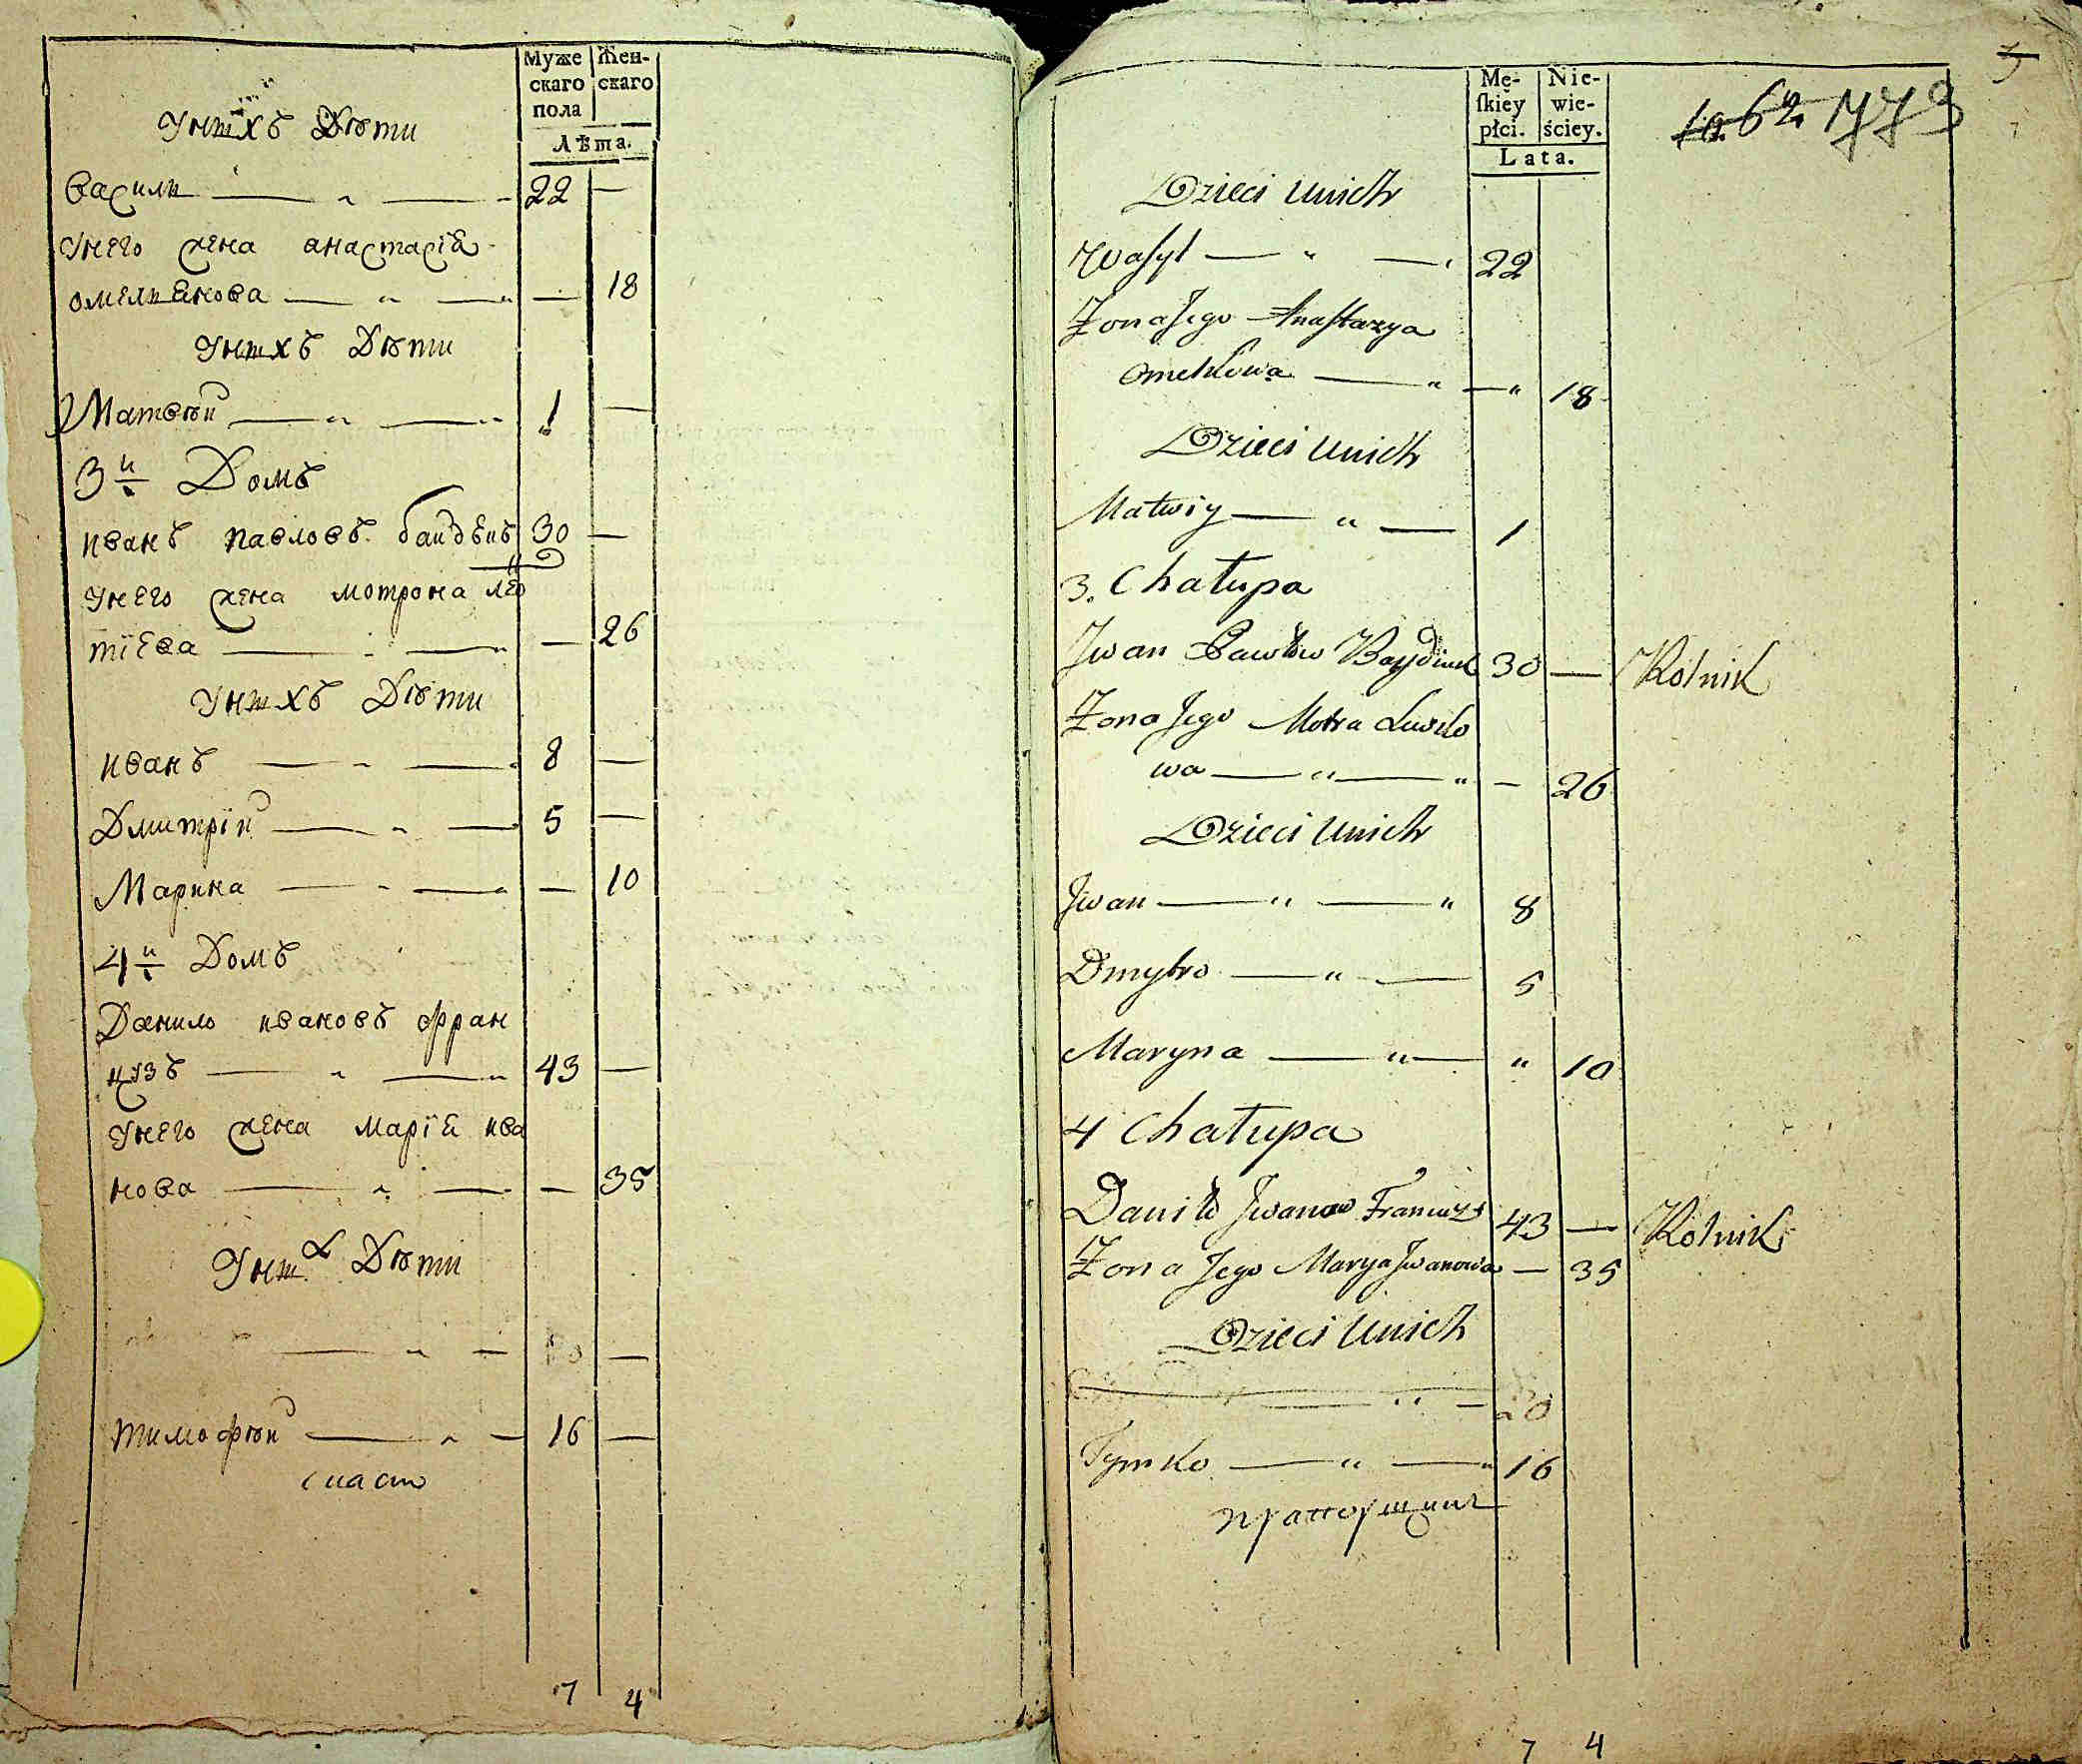 Муже
скаго
пола
Жен-
скаго
Лѣта.
Унихъ Дѣти
Васили 22 —
Унего жена анастасія
омелянова — 18
Унихъ Дѣти
Матвѣй 1 —
3й Домъ
иванъ павловъ 30 —
Унего жена мотрона лео
тіева — 26
Унихъ Дѣти
иванъ 8 —
Дмитрій 5 —
Марина — 10
4й Домъ
Данило ивановъ фран
цузъ 43 —
Унего жена марія ива
нова — 35
Дѣти
тимофѣй 16 —
7 4
Mę-
ſkiéy
płci.
Nie-
wie-
ściey.
Lata.
62 773
Dzieci unich
Waſyl 22
Żona Jego Anaſtazya
Omelkowa — 18
Dzieci unich
Matwiy 1
3. Chałupa
Jwan Pawłow 30 — Rolnik
Żona Jego Motra
wa — 26
Dzieci unich
Jwan 8
Dmytro 5
Maryna " 10
4 Chałupa
Daniło Jwanow Francuz 43 — Rolnik
Żona Jego Marya Jwanowa — 35
Dzieci unich
20
Tymko 16
7 4